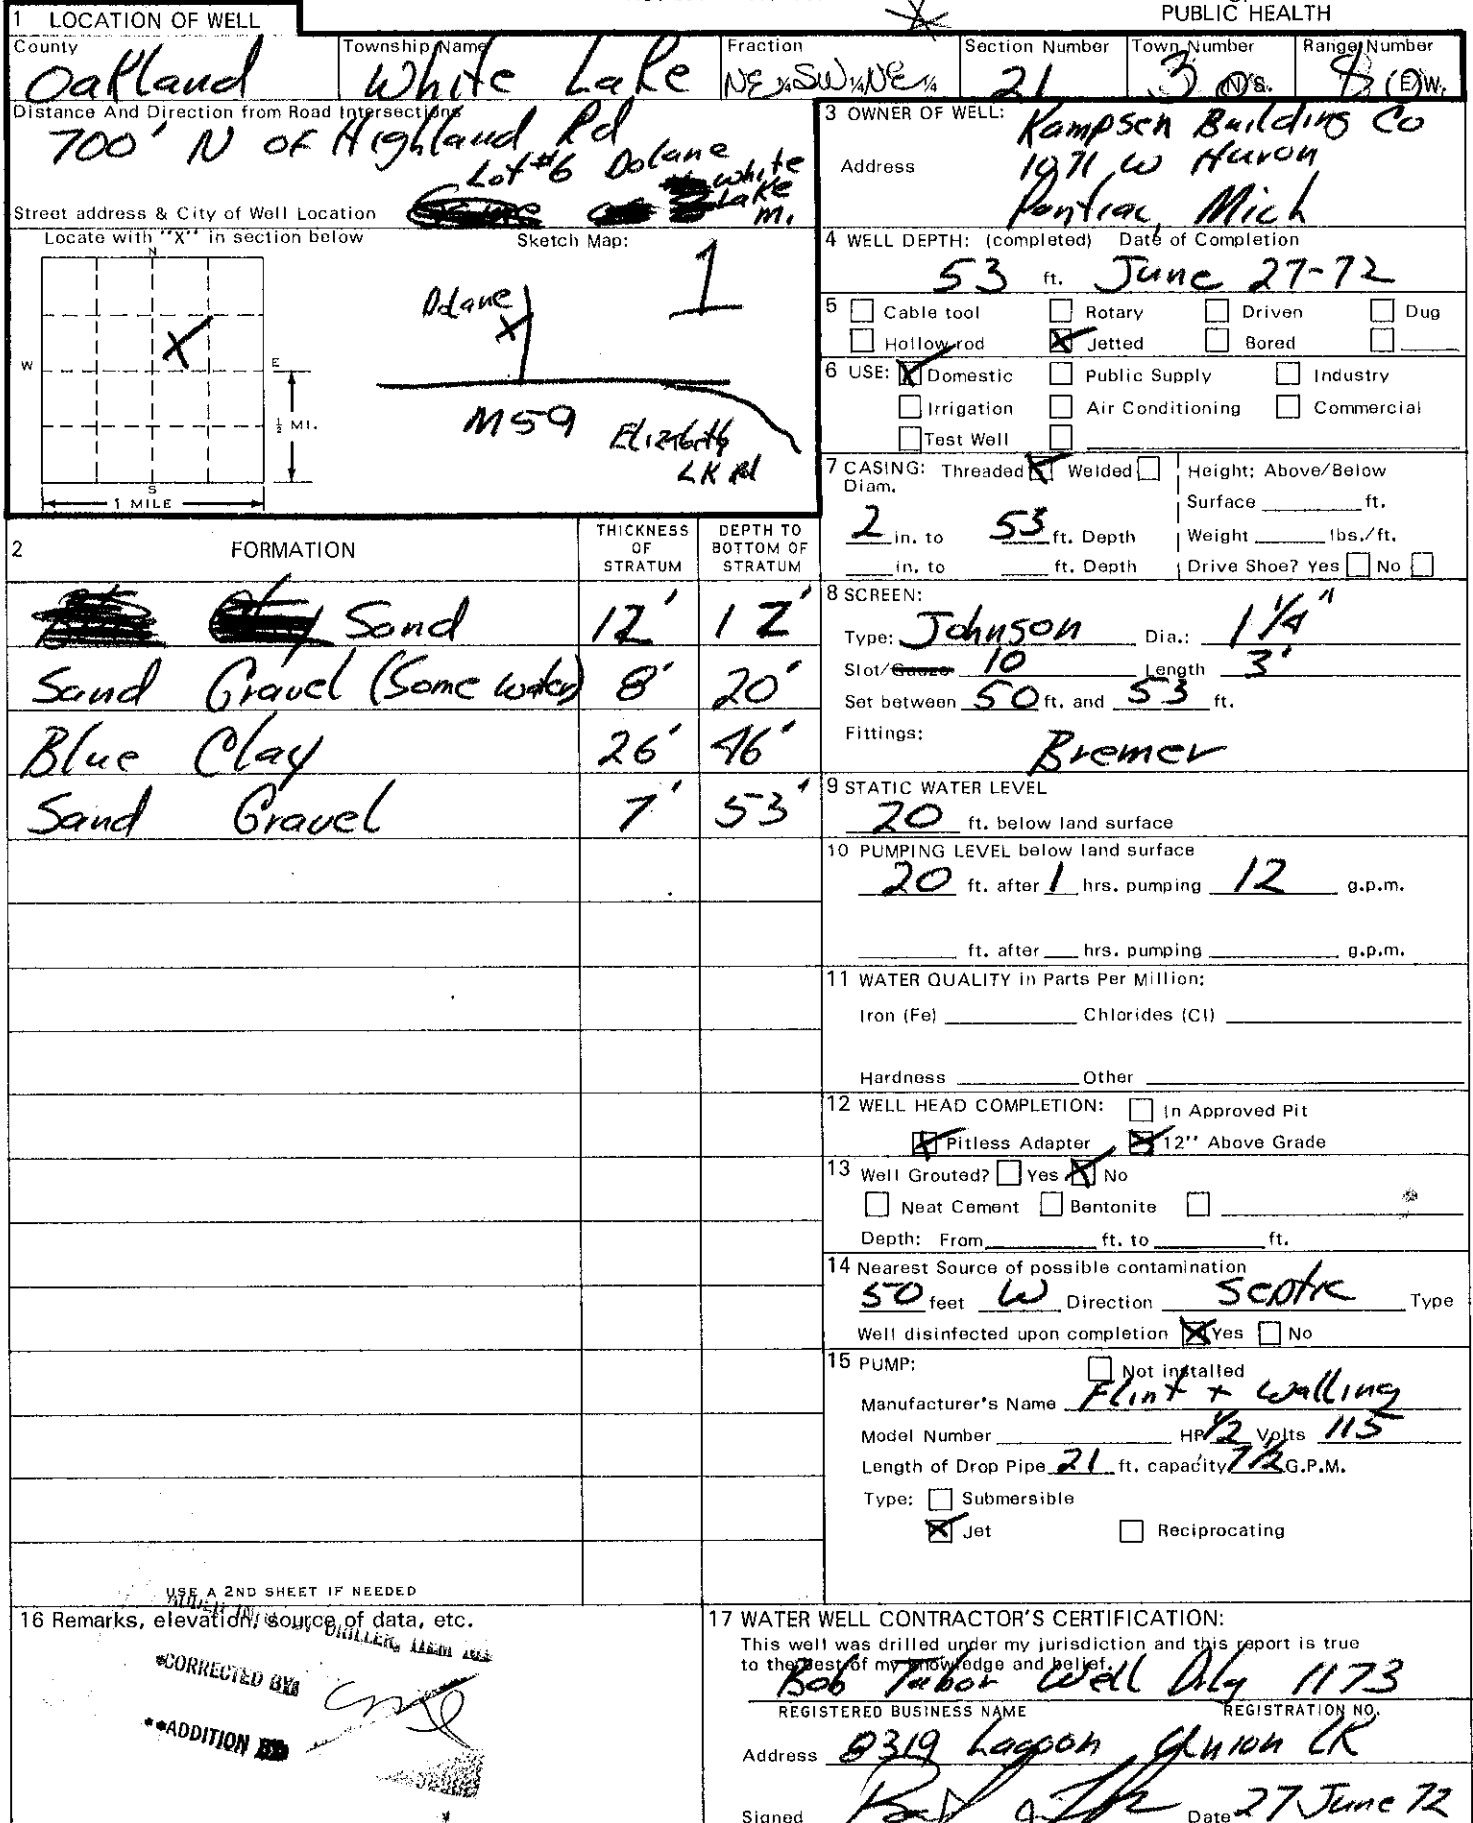 PUBLIC HEALTH
1 LOCATION OF WELL
County Township Name Fraction Section Number Town Number Range Number
Oakland White Lake NE ¼ SW ¼ NE ¼ 21 3 N/S. 8 E/W.
Distance And Direction from Road Intersections
700' N of Highland Rd
Lot #6 Dolane
white
Lake
Mi.
Street address & City of Well Location
Locate with "X" in section below Sketch Map:
N
W E
S
½ MI.
1 MILE
Dolane
X
1
M59 Elizabeth
LK Rd
3 OWNER OF WELL: Kampsen Building Co
Address 1071 W Huron
Pontiac, Mich
4 WELL DEPTH: (completed) Date of Completion
53 ft. June 27-72
5 Cable tool Rotary Driven Dug
Hollow rod Jetted Bored
6 USE: Domestic Public Supply Industry
Irrigation Air Conditioning Commercial
Test Well
7 CASING: Threaded Welded Height: Above/Below
Diam.
Surface ft.
2 in. to 53 ft. Depth Weight lbs./ft.
in. to ft. Depth Drive Shoe? Yes No
2 FORMATION THICKNESS OF STRATUM DEPTH TO BOTTOM OF STRATUM
Sand 12' 12'
Sand Gravel (Some water) 8' 20'
Blue Clay 26' 46'
Sand Gravel 7' 53'
8 SCREEN:
Type: Johnson Dia.: 1 1/4"
Slot/Gauze 10 Length 3'
Set between 50 ft. and 53 ft.
Fittings:
Bremer
9 STATIC WATER LEVEL
20 ft. below land surface
10 PUMPING LEVEL below land surface
20 ft. after 1 hrs. pumping 12 g.p.m.
ft. after hrs. pumping g.p.m.
11 WATER QUALITY in Parts Per Million:
Iron (Fe) Chlorides (Cl)
Hardness Other
12 WELL HEAD COMPLETION: In Approved Pit
Pitless Adapter 12" Above Grade
13 Well Grouted? Yes No
Neat Cement Bentonite
Depth: From ft. to ft.
14 Nearest Source of possible contamination
50 feet W Direction Septic Type
Well disinfected upon completion Yes No
15 PUMP: Not installed
Manufacturer's Name Flint + Walling
Model Number HP 1/2 Volts 115
Length of Drop Pipe 21 ft. capacity 7 1/2 G.P.M.
Type: Submersible
Jet Reciprocating
USE A 2ND SHEET IF NEEDED
16 Remarks, elevation, source of data, etc.
DRILLER, ITEM
*CORRECTED BY
**ADDITION
17 WATER WELL CONTRACTOR'S CERTIFICATION:
This well was drilled under my jurisdiction and this report is true
to the best of my knowledge and belief.
Bob Tabor Well Dlg 1173
REGISTERED BUSINESS NAME REGISTRATION NO.
Address 8319 Lagoon, Union LK
Signed Date 27 June 72